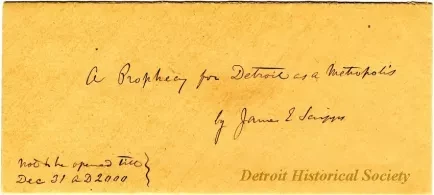 A Prophecy for Detroit as a Metropolis
by James E Scripps
Not to be opened till
Dec 31 A D 2000
Detroit Historical Society